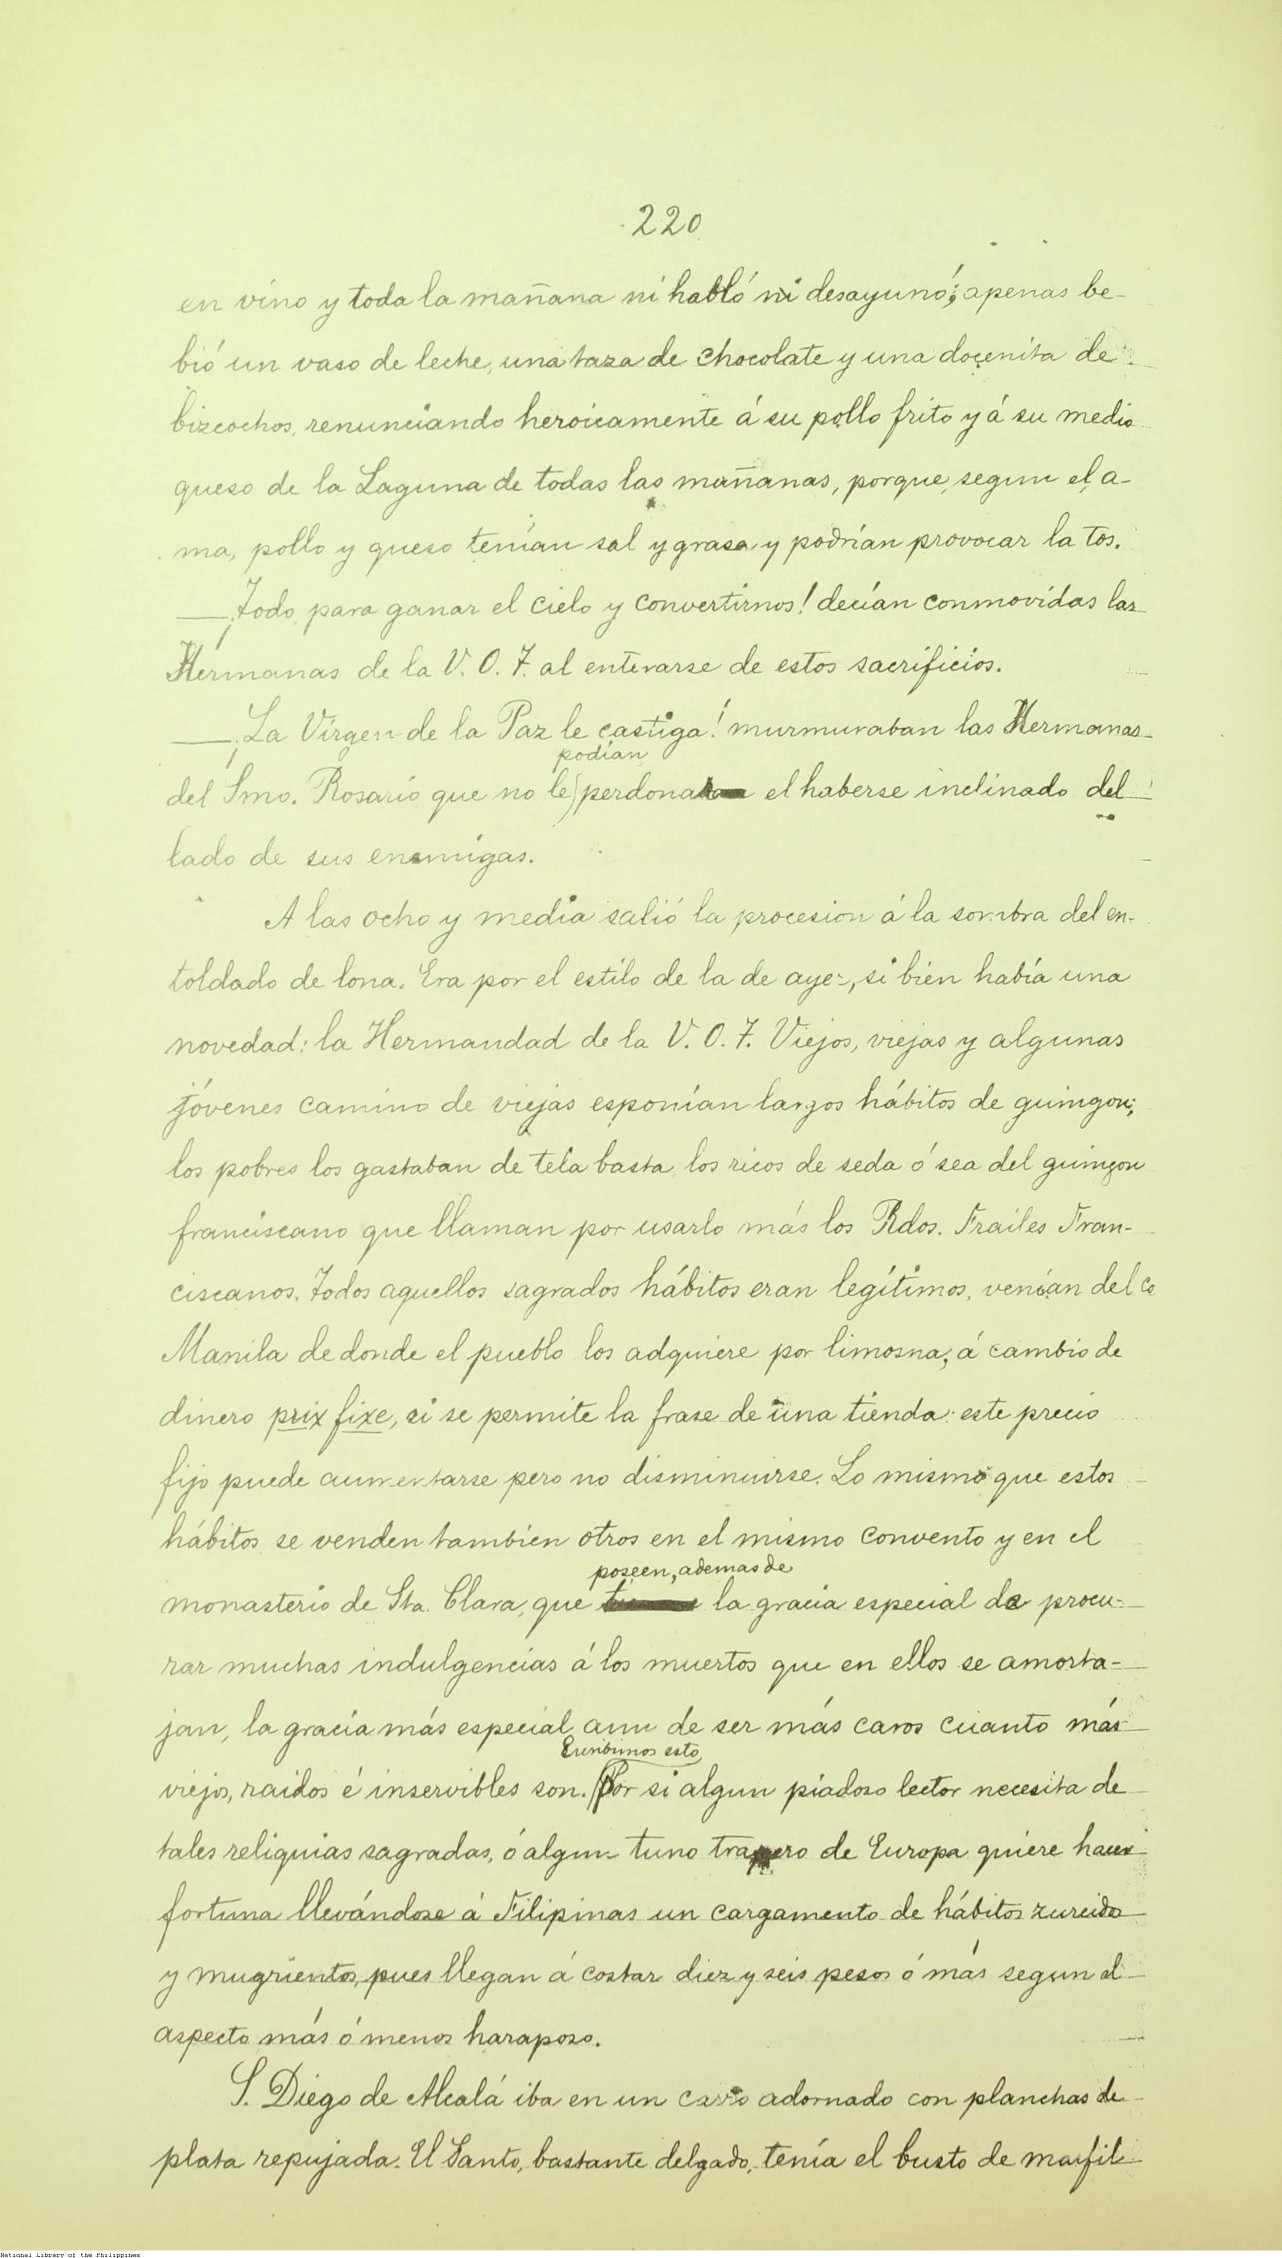 220
en vino y toda la mañana ni habló ni desayunó; apenas be-
bió un vaso de leche, una taza de chocolate y una docenita de
bizcochos, renunciando heroicamente á su pollo frito y á su medio
queso de la Laguna de todas las mañanas, porque, segun el a-
ma, pollo y queso tenían sal y grasa y podrían provocar la tos.
—¡Todo para ganar el cielo y convertirnos! decían conmovidas las
Hermanas de la V. O. T. al enterarse de estos sacrificios.
—¡La Vírgen de la Paz le castiga! murmuraban las Hermanas
podían
del Smo. Rosario que no le perdonar el haberse inclinado del
lado de sus enemigas.
A las ocho y media salió la procesion á la sombra del en-
toldado de lona. Era por el estilo de la de ayer, si bien había una
novedad: la Hermandad de la V. O. T. Viejos, viejas y algunas
jóvenes camino de viejas esponían largos hábitos de guingon;
los pobres los gastaban de tela basta, los ricos de seda ó sea del guingon
franciscano que llaman por usarlo más los Rdos. Frailes Fran-
ciscanos. Todos aquellos sagrados hábitos eran legítimos, venían del Co
Manila de donde el pueblo los adquiere por limosna, á cambio de
dinero prix fixe, si se permite la frase de una tienda: este precio
fijo puede aumentarse pero no disminuirse. Lo mismo que estos
hábitos se venden tambien otros en el mismo convento y en el
poseen, ademas de
monasterio de Sta. Clara, que la gracia especial de procu-
rar muchas indulgencias á los muertos que en ellos se amorta-
jan, la gracia más especial aun de ser más caros cuanto más
Escribimos esto
viejos, raidos é inservibles son. Por si algun piadoso lector necesita de
tales reliquias sagradas, ó algun tuno trapero de Europa quiere hacer
fortuna llevándose á Filipinas un cargamento de hábitos zurcidos
y mugrientos, pues llegan á costar diez y seis pesos ó más segun el
aspecto más ó menos haraposo.
S. Diego de Alcalá iba en un carro adornado con planchas de
plata repujada. El Santo, bastante delgado, tenía el busto de marfil